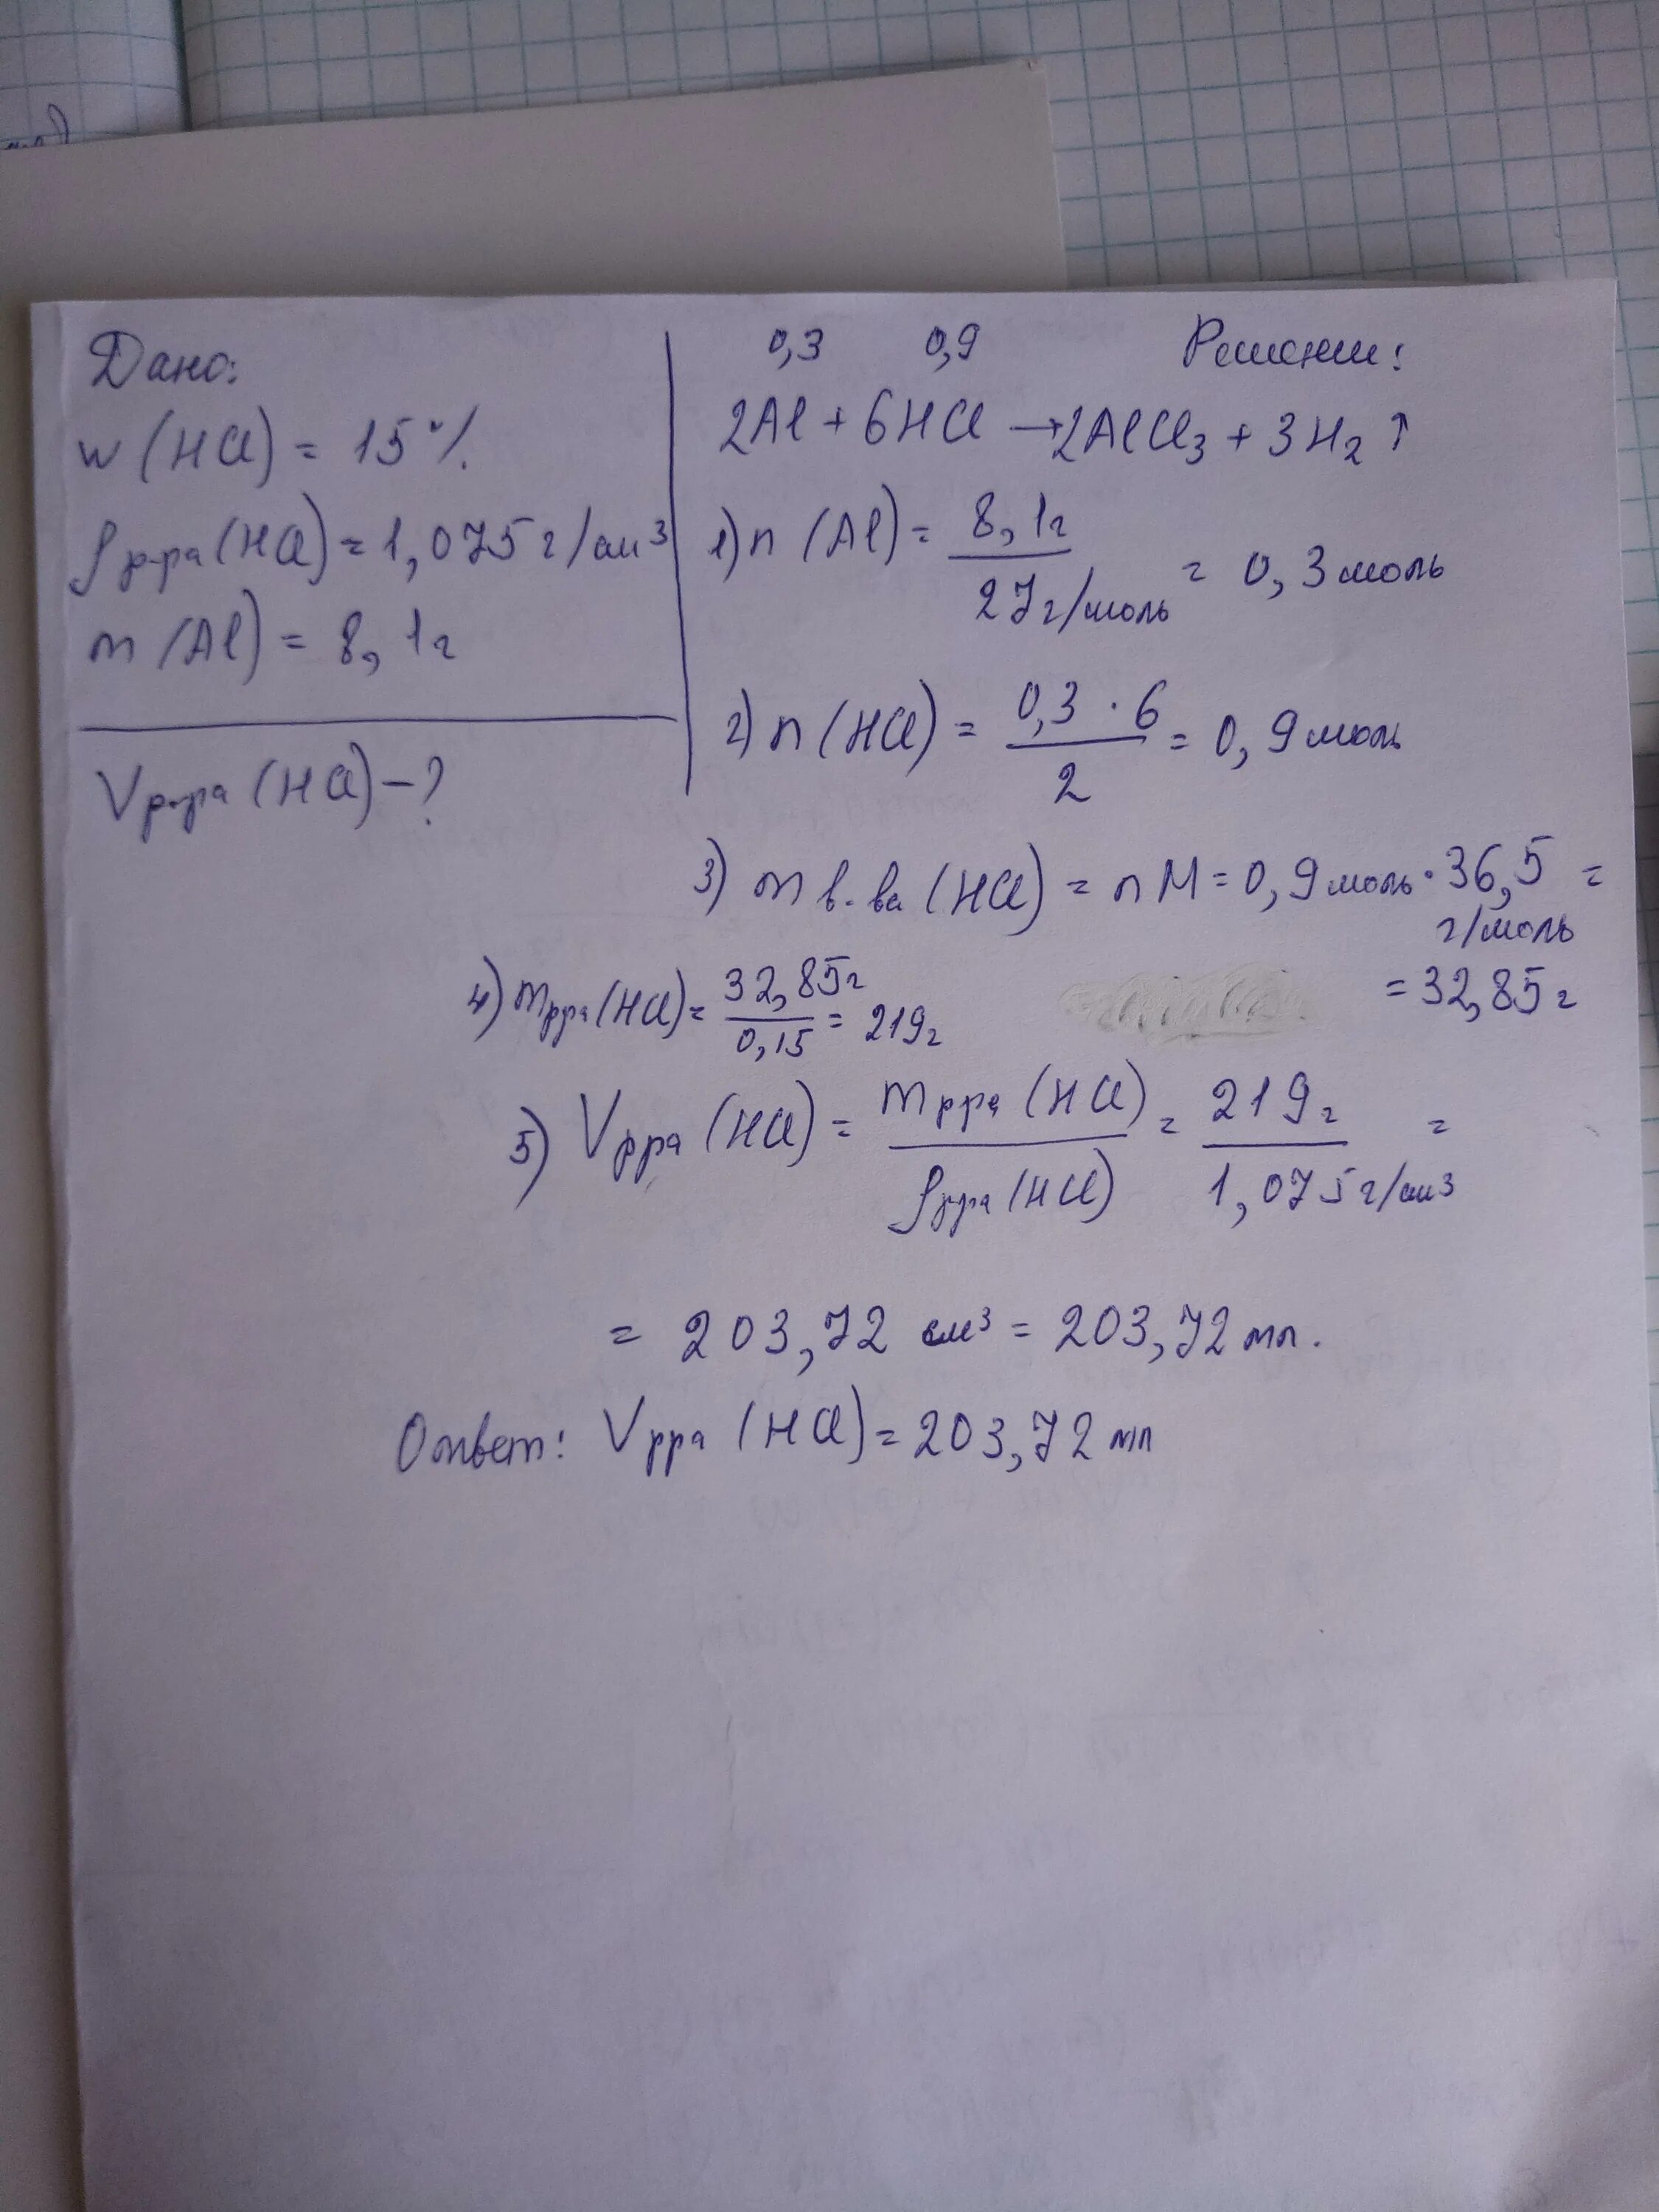 Дано:
w (HCl) = 15%
ρ р-ра (HCl) = 1,075 г/см³
m (Al) = 8,1г
V р-ра (HCl) - ?
0,3 0,9 Решение:
2Al + 6HCl → 2AlCl₃ + 3H₂ ↑
1) n (Al) = 8,1г / 27 г/моль = 0,3 моль
2) n (HCl) = 0,3 · 6 / 2 = 0,9 моль
3) m в-ва (HCl) = n M = 0,9 моль · 36,5 г/моль =
= 32,85 г
4) m рра (HCl) = 32,85г / 0,15 = 219г
5) V рра (HCl) = m рра (HCl) / ρ рра (HCl) = 219 г / 1,075 г/см³ =
= 203,72 см³ = 203,72 мл.
Ответ: V рра (HCl) = 203,72 мл